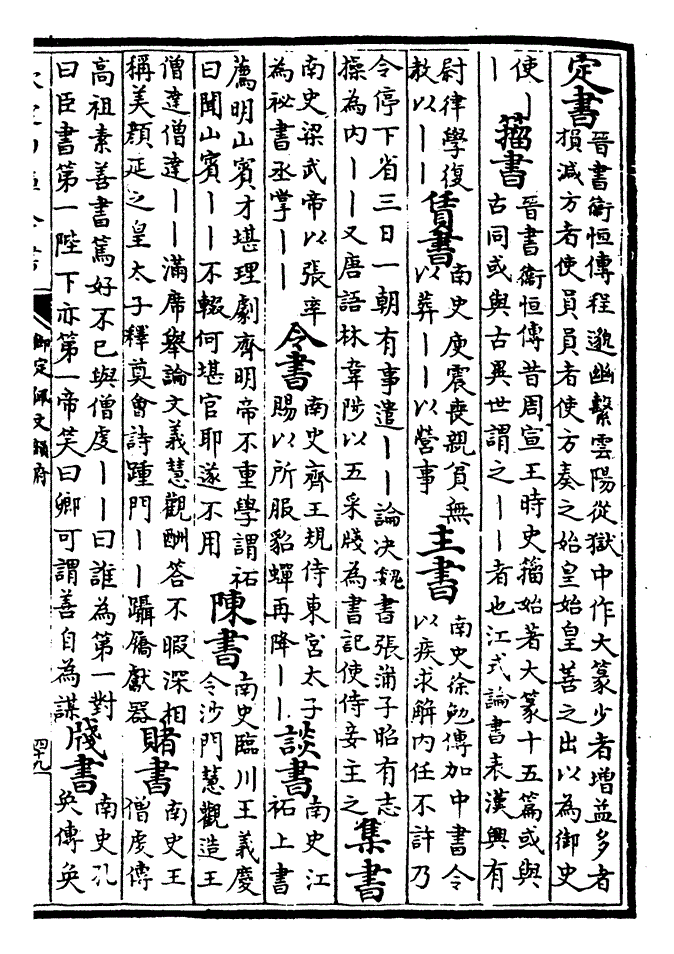 定書
晉書衛恒傳程邈幽繫雲陽從獄中作大篆少者增益多者
損減方者使員員者使方奏之始皇始皇善之出以為御史
使丨
丨
籀書
晉書衛恒傳昔周宣王時史籀始著大篆十五篇或與
古同或與古異世謂之丨丨者也江式論書表漢興有
尉律學復
教以丨丨
賃書
南史庾震喪親貧無
以葬丨丨以營事
主書
南史徐勉傳加中書令
以疾求解內任不許乃
令停下省三日一朝有事遣丨丨論决魏書張蒲子昭有志
操為內丨丨又唐語林韋陟以五采牋為書記使侍妾主之
集書
南史梁武帝以張率
為祕書丞掌丨丨
令書
南史齊王規侍東宮太子
賜以所服貂蟬再降丨丨
談書
南史江
祏上書
薦明山賓才堪理劇齊明帝不重學謂祏
曰聞山賓丨丨不輟何堪官耶遂不用
陳書
南史臨川王義慶
令沙門慧觀造王
僧達僧達丨丨滿席舉論文義慧觀酬答不暇深相
稱美顏延之皇太子釋奠會詩踵門丨丨躡屩獻器
賭書
南史王
僧虔傳
高祖素善書篤好不已與僧虔丨丨曰誰為第一對
曰臣書第一陛下亦第一帝笑曰卿可謂善自為謀
牋書
南史孔
奐傳奐
御定佩文韻府
四十九